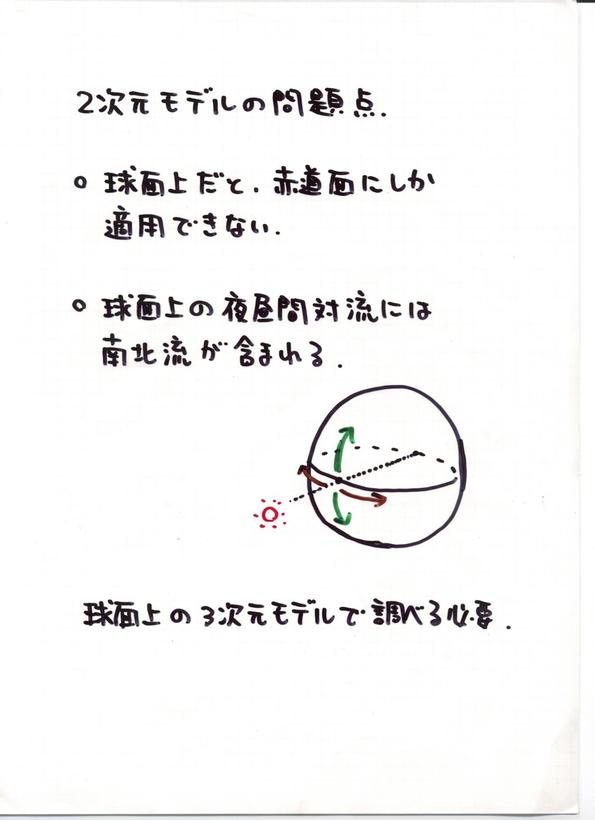 2次元モデルの問題点.
○ 球面上だと、赤道面にしか
適用できない.
○ 球面上の夜昼間対流には
南北流が含まれる.
球面上の3次元モデルで調べる必要.